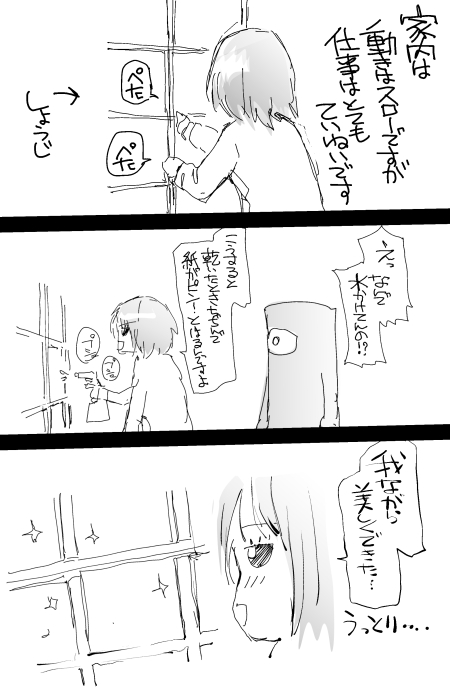 家内は
動きはスローですが
仕事はとても
ていねいです
ぺた
ぺた
しょうじ
えっなんで
水かけてんの!?
こうすると
乾いたときちぢんで
紙がピンーとはるんですよ
我ながら
美しくできた…
うっとり‥‥